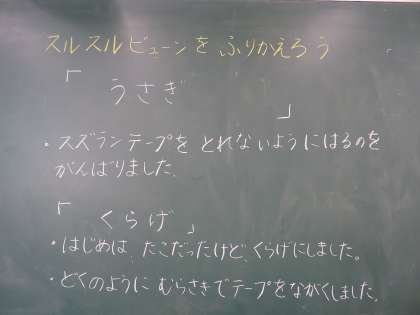 スルスルビューンを ふりかえろう
「うさぎ
」
・スズランテープを とれないようにはるのを
がんばりました。
「くらげ」
・はじめは、たこだったけど、くらげにしました。
・どくのように むらさきでテープをながくしました。